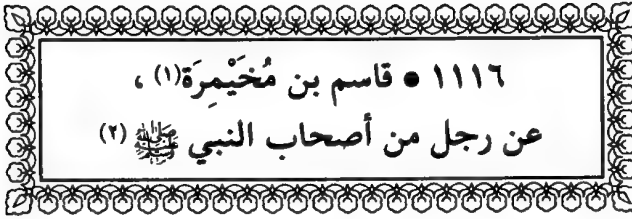 ١١١٦ ● قاسم بن مُخَيْمِرَة(١) ،
عن رجل من أصحاب النبي ﷺ (٢)